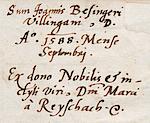 Sum Joannis Besingeri
Villingani, D.
Aº. 1588. Mense
Septembri.
Ex dono Nobilis et in-
clyti Viri, Dni Marci
a Reyschach. &.